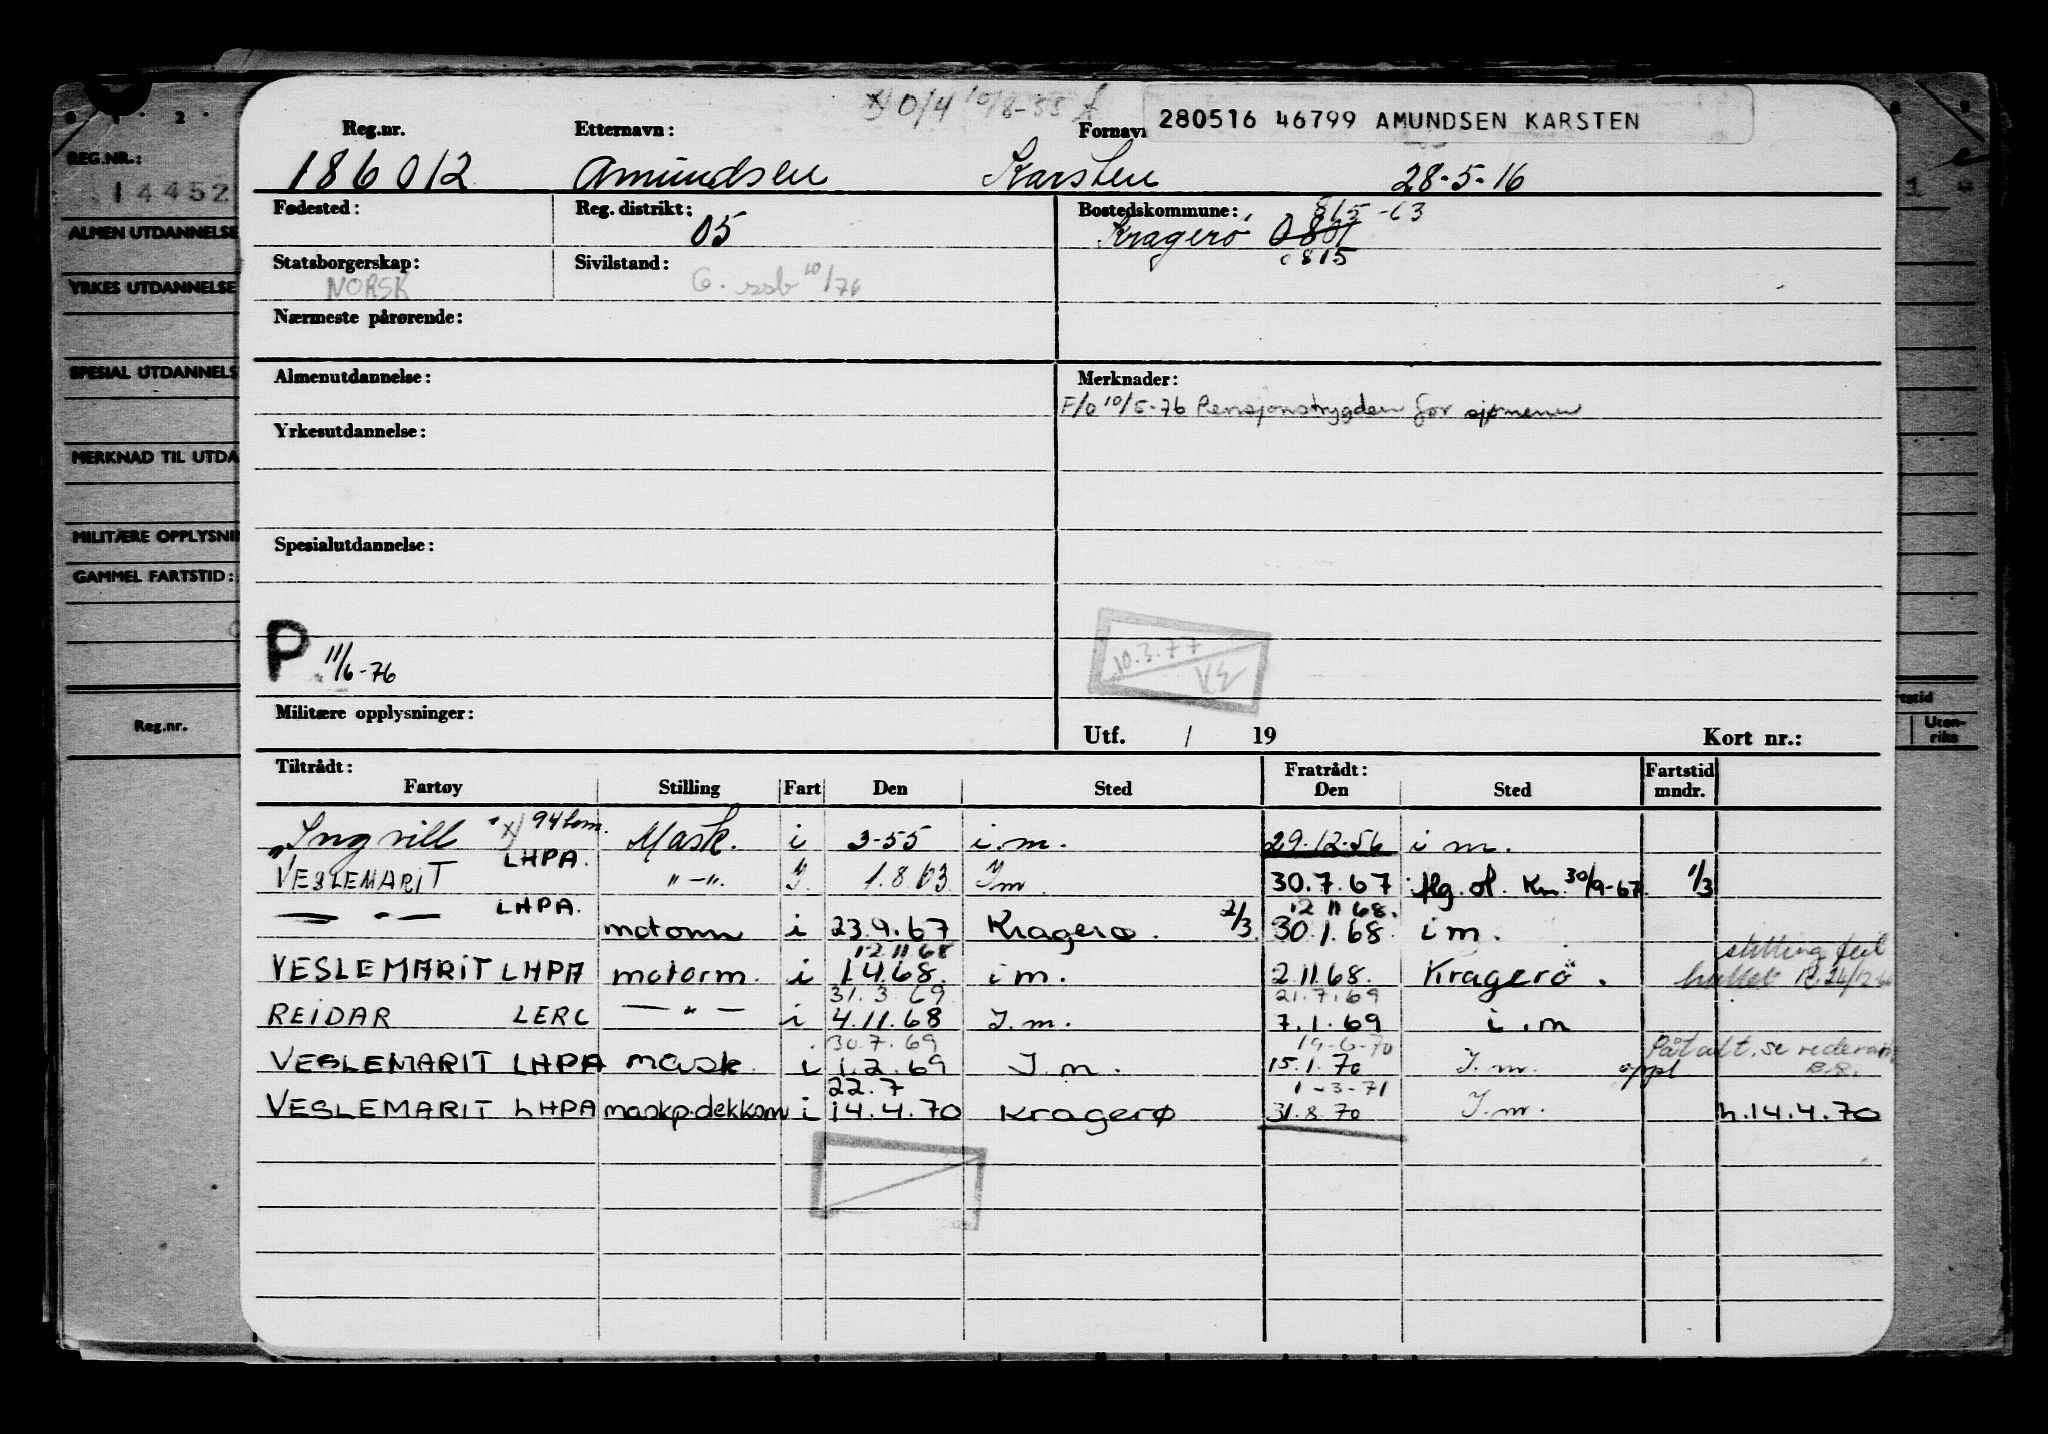 x) 0/4 10/8-55
280516 46799 AMUNDSEN KARSTEN
Reg.nr. Etternavn: Fornavn
186012 Amundsen Karsten 28-5-16
REG.NR.:
14452
Fødested: Reg. distrikt: 05 Bostedskommune: 815 -63
Kragerø 0801
0815
ALMEN UTDANNELSE
Statsborgerskap: Sivilstand:
NORSK G. ssb 10/76
YRKES UTDANNELSE
Nærmeste pårørende:
SPESIAL UTDANNELS
Almenutdannelse: Merknader:
F/o 10/5-76 Pensjonstrygden for sjømenn
Yrkesutdannelse:
MERKNAD TIL UTDA
MILITÆRE OPPLYSNIN
Spesialutdannelse:
GAMMEL FARTSTID:
P 11/6-76
10.3.77
Militære opplysninger:
Utf. / 19 Kort nr.:
Reg.nr.
rtstid
Uten-
riks
Tiltrådt: Fratrådt: Fartstid
Fartøy Stilling Fart Den Sted Den Sted mndr.
Ingvill x) 94 Mask. i 3-55 i.m. 29.12.56 i m.
VESLEMARIT LHPA. -"- I. 1.8.63 Im. 30.7.67 30/9-67 1/3
— " — LHPA. motorm i 23.9.67 Kragerø. 2/3 30.1.68. i m.
12 11 68.
12 11 68
VESLEMARIT LHPA motorm. i 1.4.68. i m. 2.11.68. Kragerø. stilling feil
31.3.69 21.7.69
REIDAR LERC — " — i 4.11.68 I.m. 7.1.69 i.m
30.7.69 19-6-70 Påtalt. se
VESLEMARIT LHPA mask i 1.2.69 I.m. 15.1.70 I.m. oppl
22.7 1-3-71
VESLEMARIT LHPA maskp.dekksm i 14.4.70 Kragerø 31.8.70 I.m. h.14.4.70